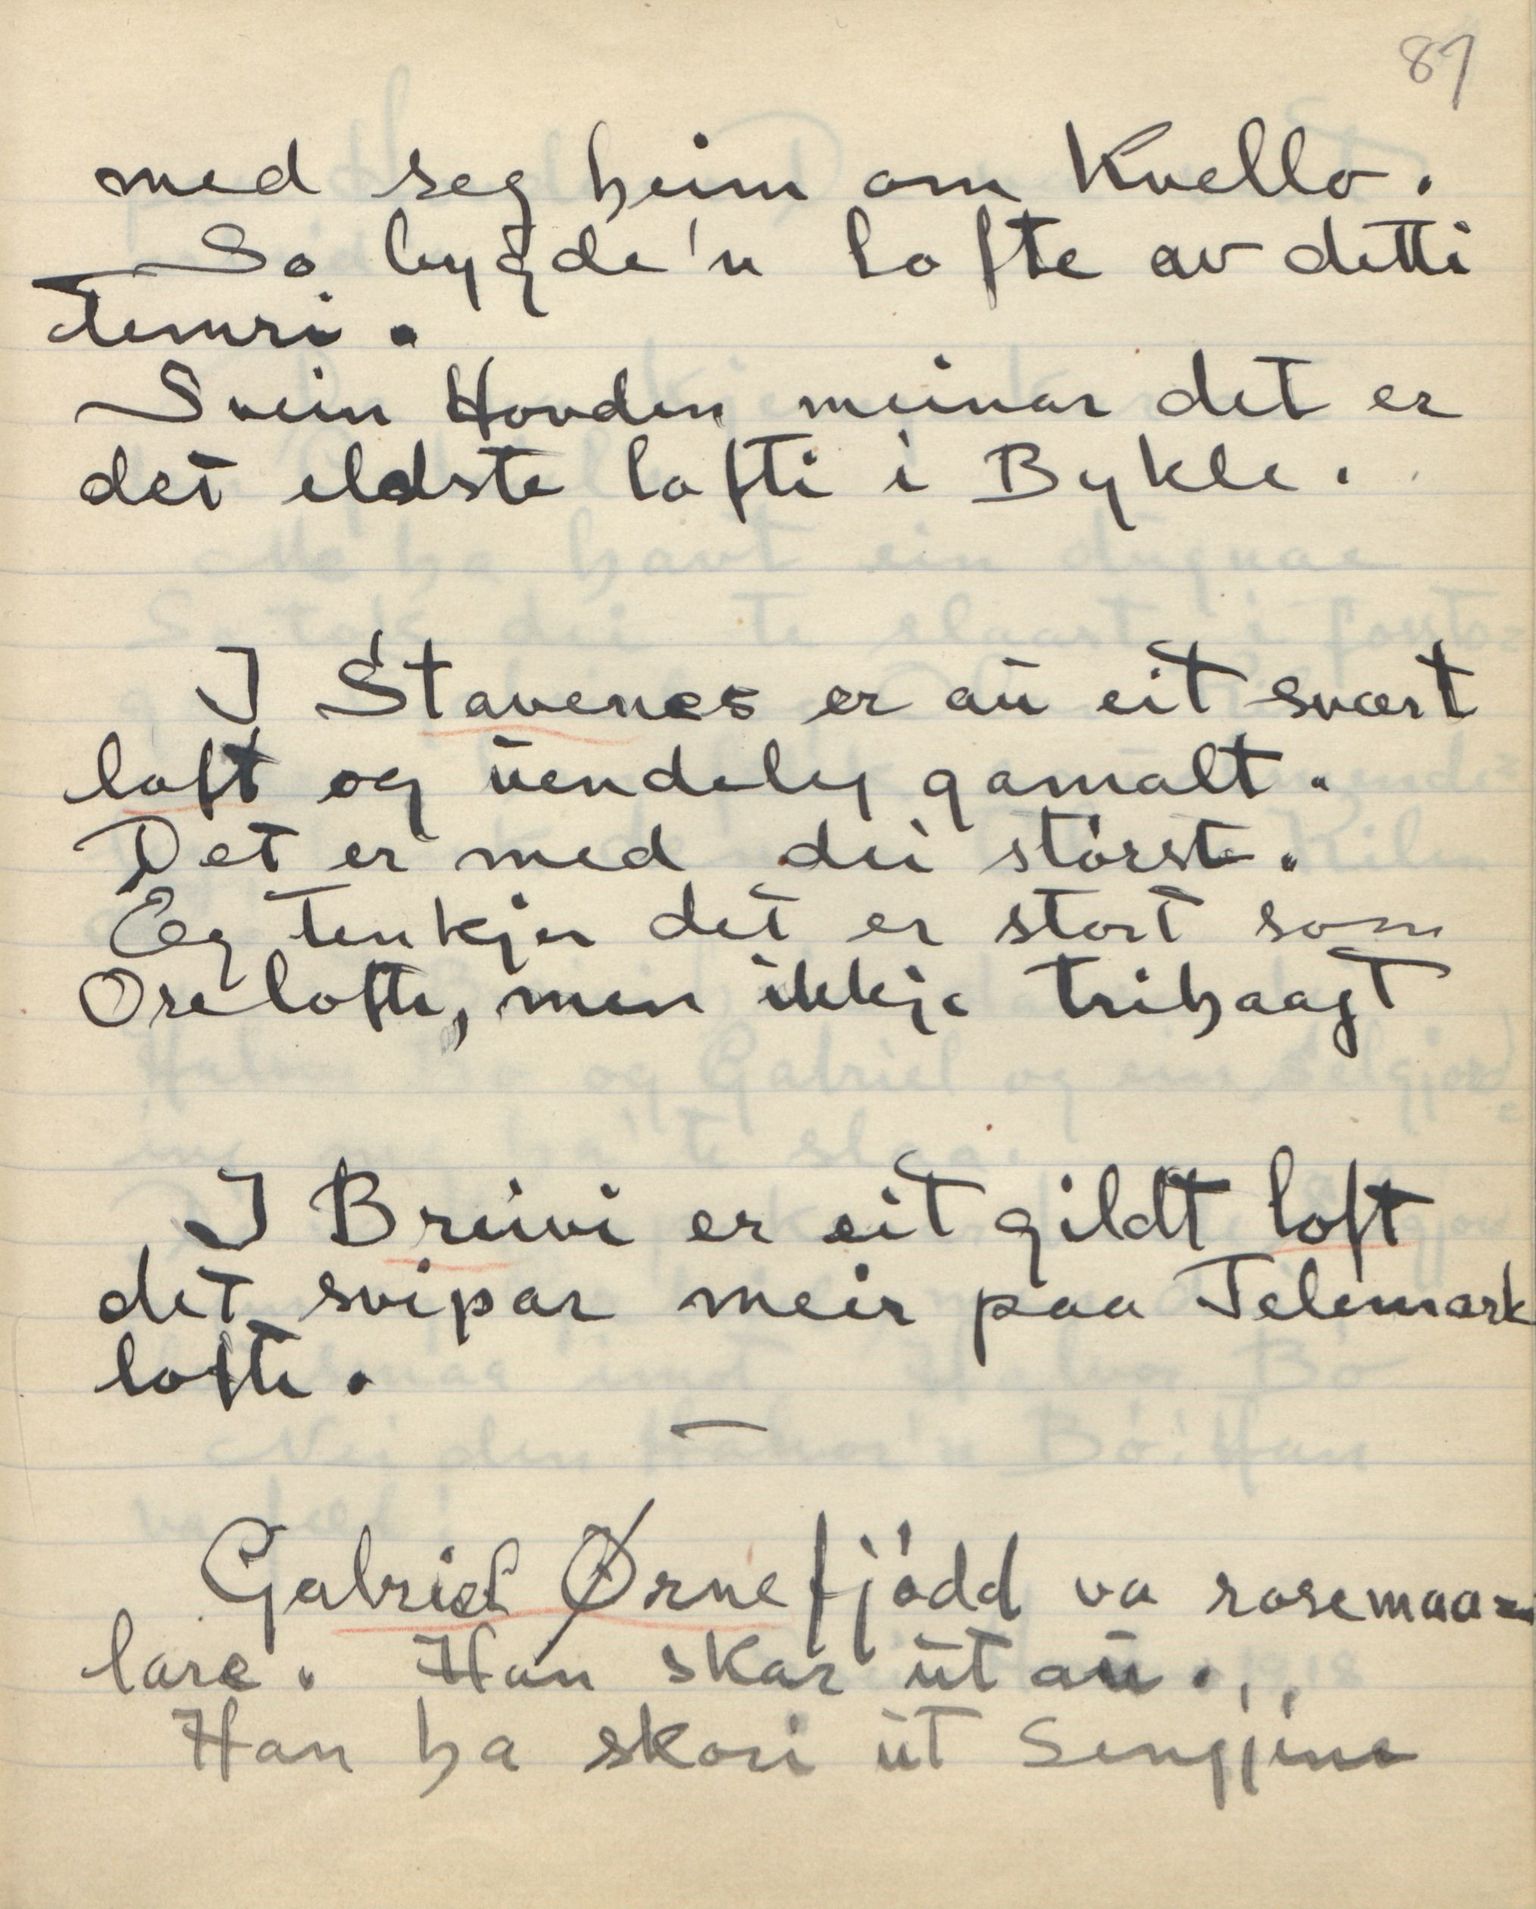 87
med seg heim om Kvello.
So bygde'n lofte av detti
temri.
Svein Hovden meinar det er
det eldste lofti i Bykle.
I Stavenes er au eit svært
loft og uendeleg gamalt.
Det er med dei störste.
Eg tenkjer det er stort som
Orelofte, men ikkje trihaagt
I Breivi er eit gildt loft
det svipar meir paa Telemark
lofte.
—
Gabriel Ørnefjödd va rosemaa=
lare. Han skar ut au.
Han ha skori ut Sengjine